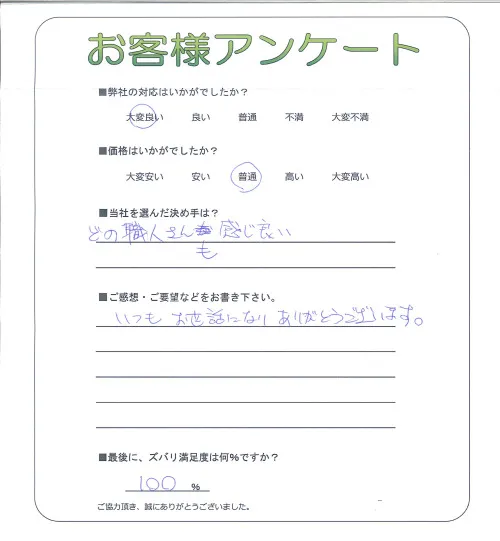 お客様アンケート
■弊社の対応はいかがでしたか？
大変良い 良い 普通 不満 大変不満
■価格はいかがでしたか？
大変安い 安い 普通 高い 大変高い
■当社を選んだ決め手は？
どの職人さんも感じ良い
■ご感想・ご要望などをお書き下さい。
いつも お世話になり ありがとうございます。
■最後に、ズバリ満足度は何%ですか？
100 %
ご協力頂き、誠にありがとうございました。